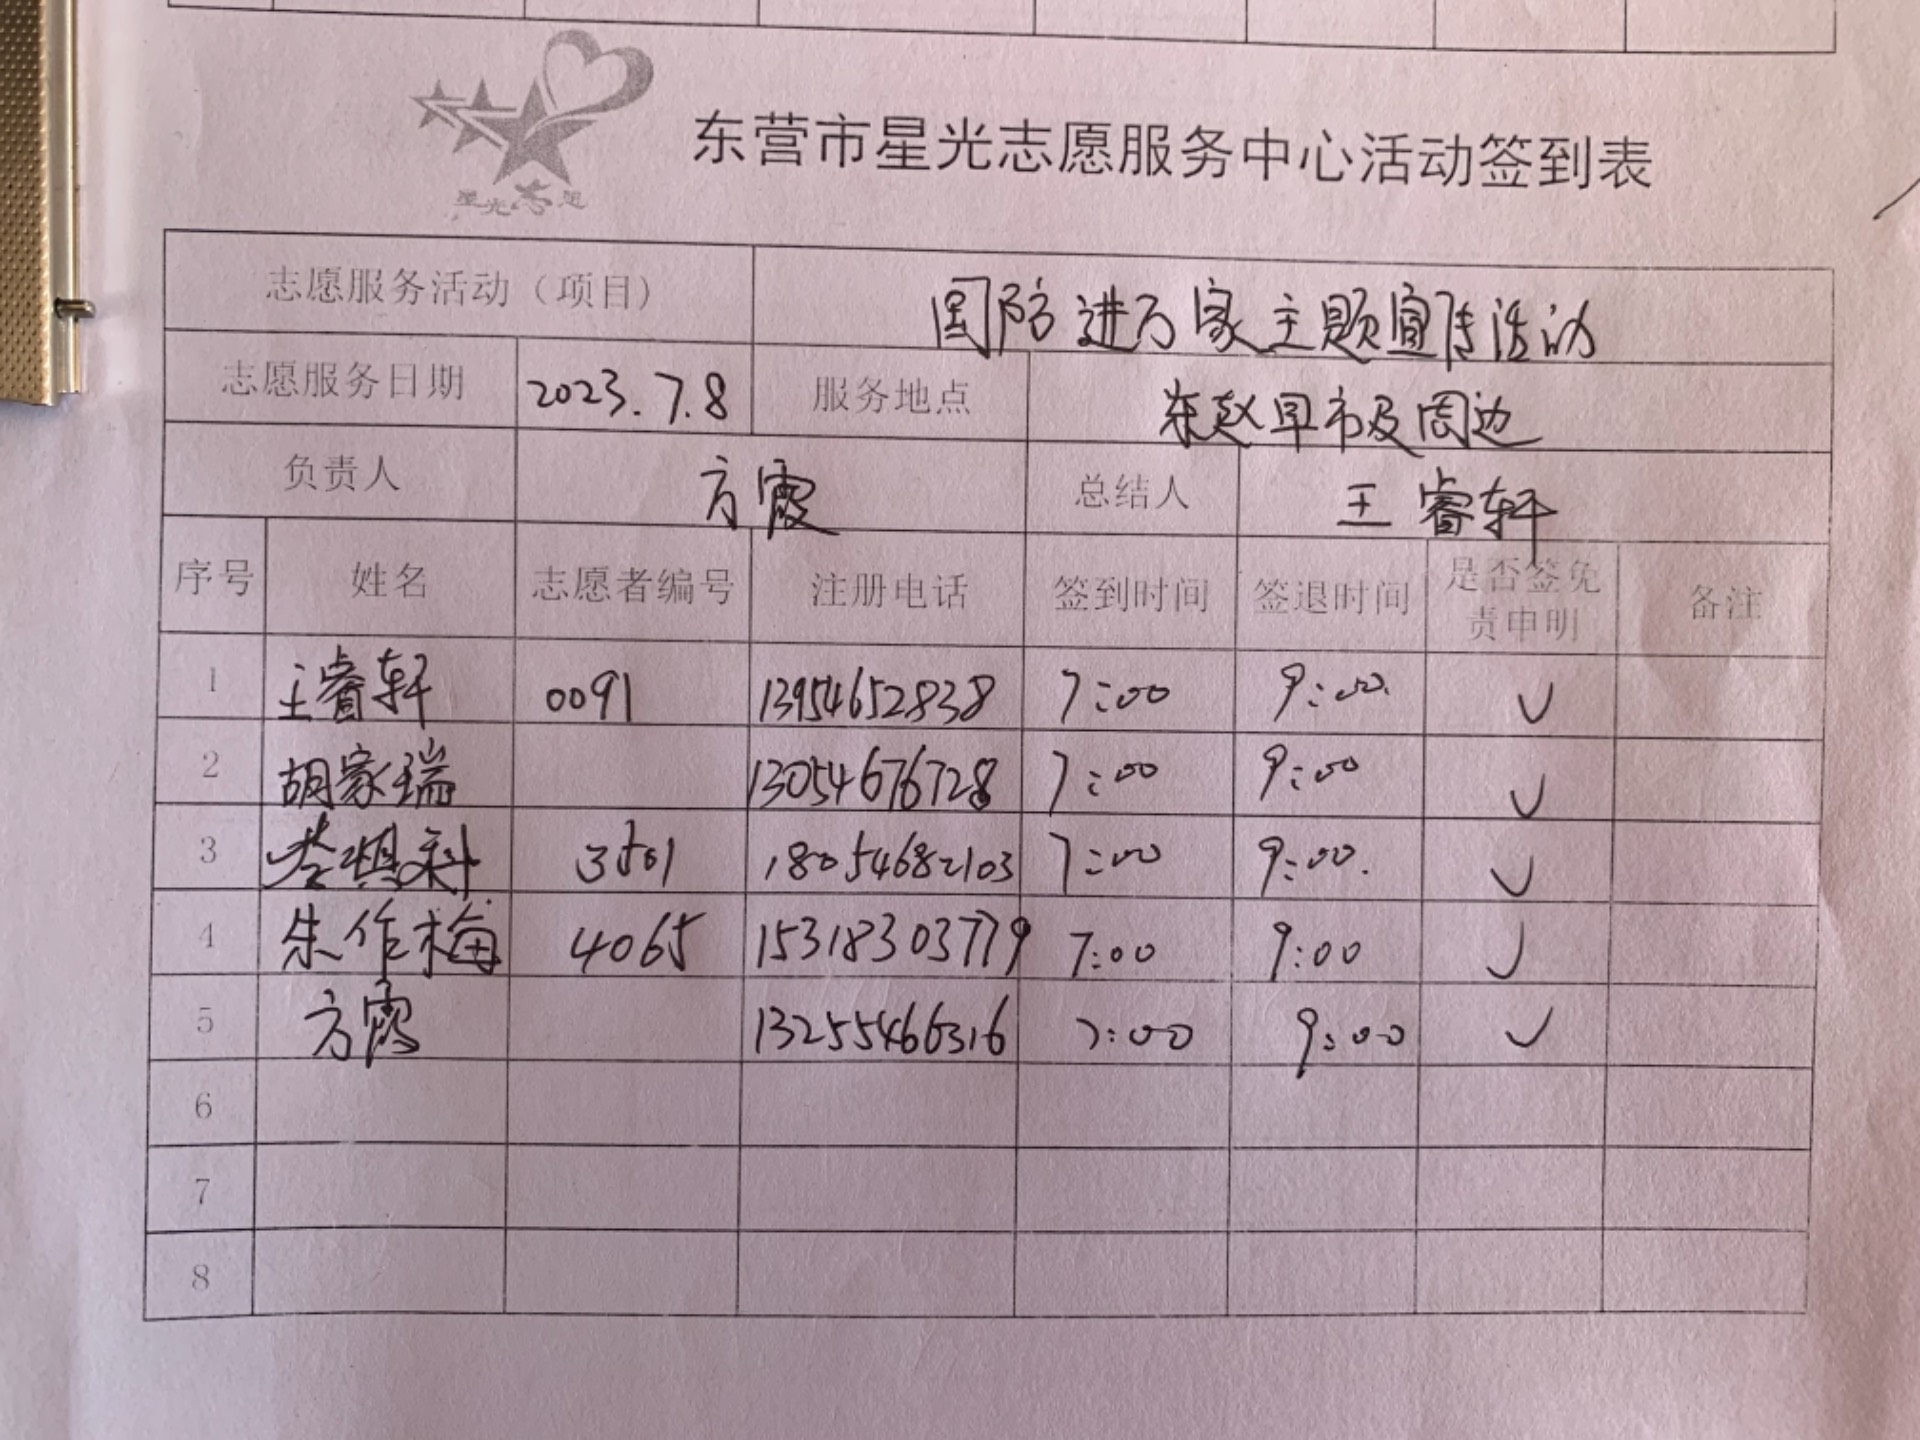 星光志愿
东营市星光志愿服务中心活动签到表
志愿服务活动（项目） 国防进万家主题宣传活动
志愿服务日期 2023.7.8 服务地点 东赵早市及周边
负责人 方霞 总结人 王睿轩
序号 姓名 志愿者编号 注册电话 签到时间 签退时间 是否签免责申明 备注
1 王睿轩 0091 13954652838 7:00 9:00. ✓
2 胡家瑞 13054676728 7:00 9:00 ✓
3 3501 18054682103 7:00 9:00. ✓
4 朱作梅 4065 15318303779 7:00 9:00 ✓
5 方霞 13255466316 7:00 9:00 ✓
6
7
8